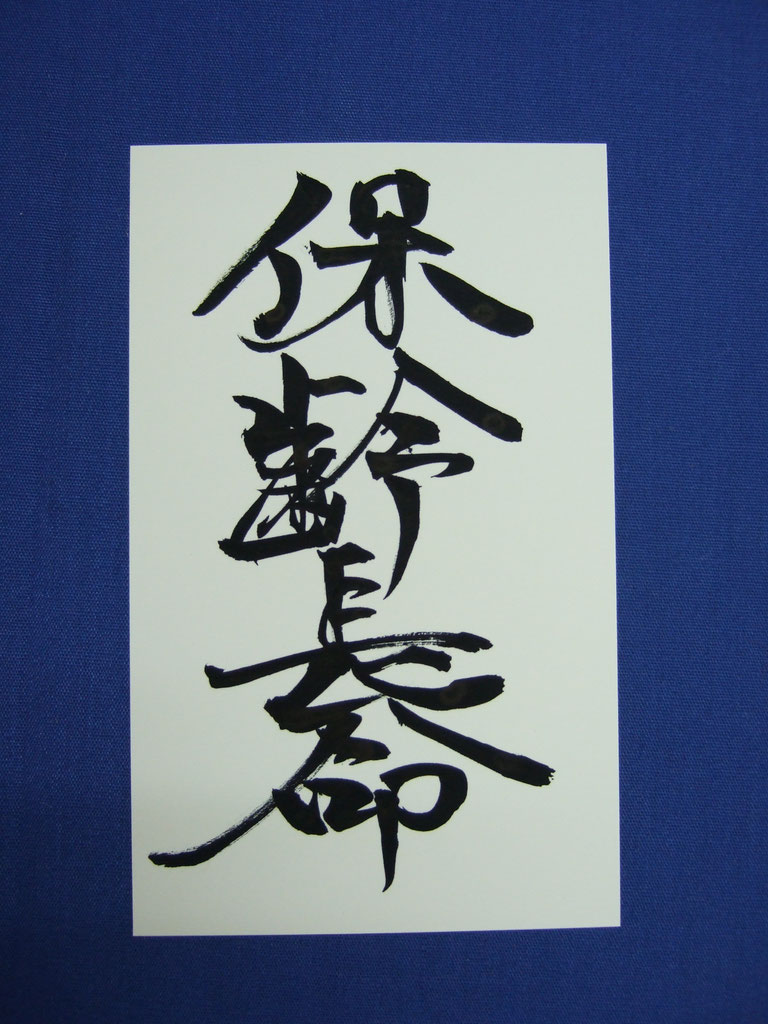 保齢長命